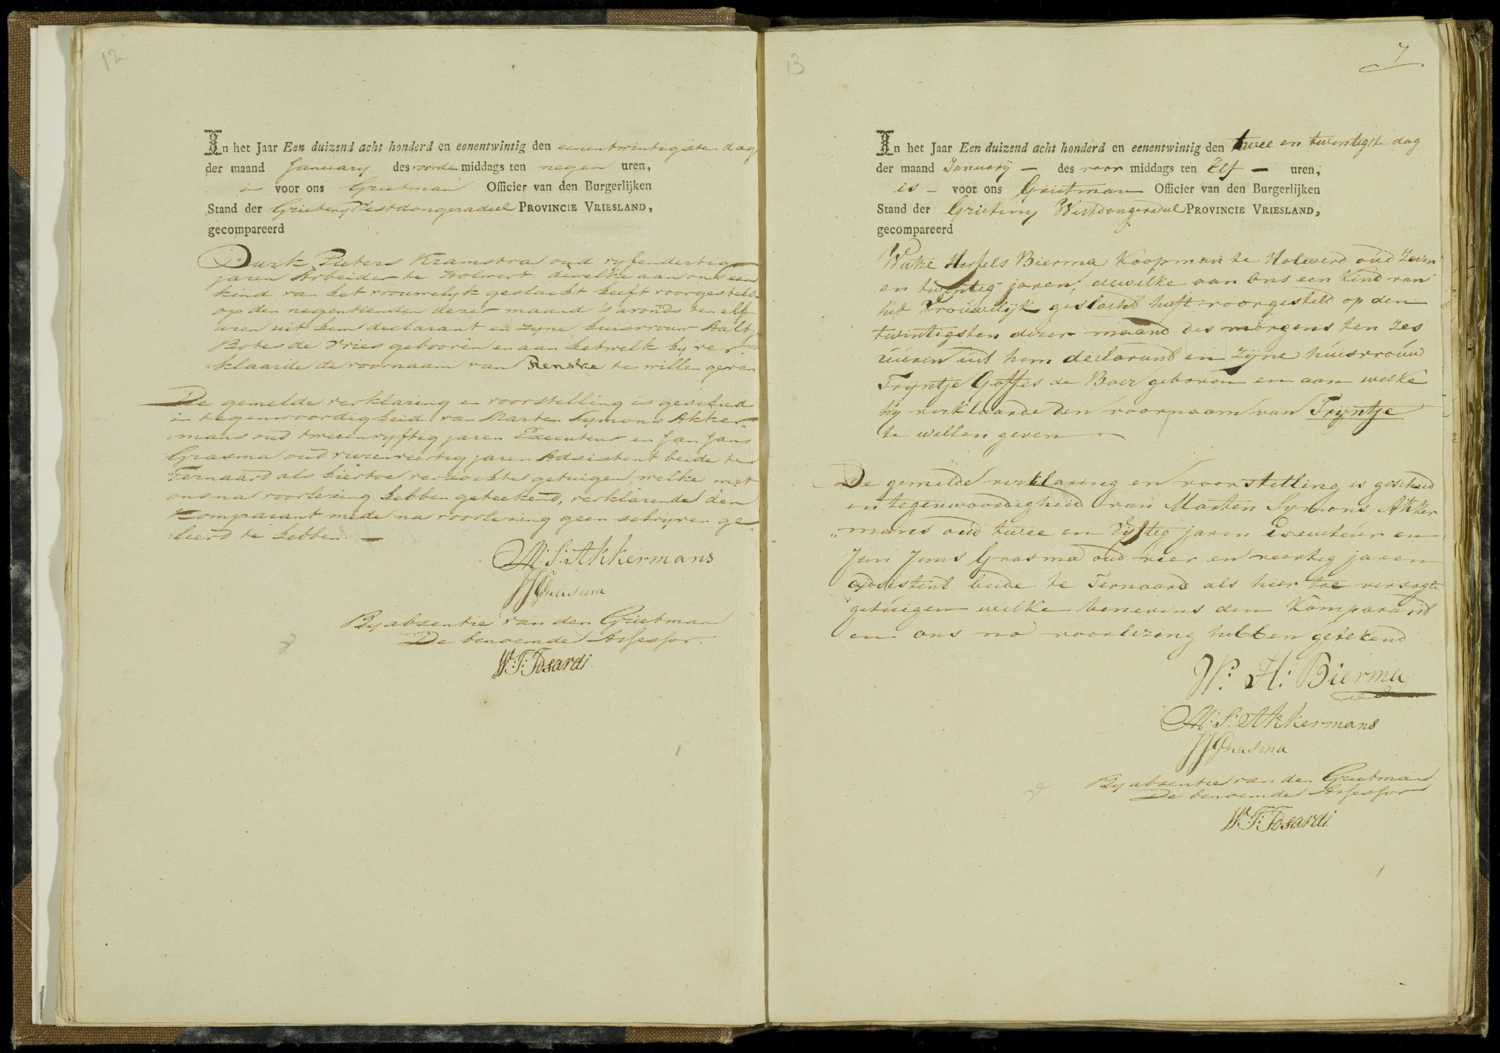 12
In het Jaar Een duizend acht honderd en eenentwintig den eenentwintigsten dag
der maand January des voorde middags ten negen uren,
is voor ons Grietman Officier van den Burgerlijken
Stand der Grietenij Westdongeradeel PROVINCIE VRIESLAND,
gecompareerd
Durk Pieters Kramstra oud vyfendertig
jaren Arbeider te Holwert dewelke aan ons een
kind van het vrouwelyk geslacht heeft voorgesteld
op den negentienden dezer maand s'avonds ten elf
uren uit hem declarant en zyne huisvrouw Aalt
Botes de Vries gebooren en aan hetwelk hy ver
klaarde de voornaam van Renske te willen geven
De gemelde verklaring en voorstelling is geschied
in tegenwoordigheid van Marten Symons Akker
mans oud tweeenvyftig jaren Executeur en Jan Jans
Grasma oud vierenveertig jaren Adsistent beide te
Ternaard als hiertoe verzochte getuigen, welke met
ons na voorlezing hebben geteekend, verklarende den
Komparant mede na voorlezing geen schryven ge
leerd te hebben.
M: S: Akkermans
JJGrasma
By absentie van den Grietman
De benoemde Assessor.
W: T: Fosardi
13
7
In het Jaar Een duizend acht honderd en eenentwintig den twee en twintigst dag
der maand January des voor middags ten Elf uren,
is voor ons Grietman Officier van den Burgerlijken
Stand der Grietenij Westdongeradeel PROVINCIE VRIESLAND,
gecompareerd
Bierma Koopman te Holwerd oud zeven
en twyntig jaren, dewilke aan ons een kind van
het vrouwelijk geslacht heft voorgesteld op den
twintigsten dezer maand des morgens ten zes
uuren uit hem declarant en Zijne huisvrouw
Tryntje Gosses de Boer geboren en aan welke
hy verklaarde den voornaam van Tryntje
te willen geven
De gemelde verklaring en voorstelling is geschied
in tegenwoordigheid van Marten Symons Akker
mans oud twee en Vyftig jaren Executeur en
Jan Jans Grasma oud vier en veertig jaren
adsistent beide te Ternaard als hier toe versogte
getuigen welke benevens den Komparand
en ons na voorlezing hebben getekend
W: H: Bierma
M: S: Akkermans
JJGrasma
By absentie van den Grietman
De benoemde Assessor
W: T: Fosardi